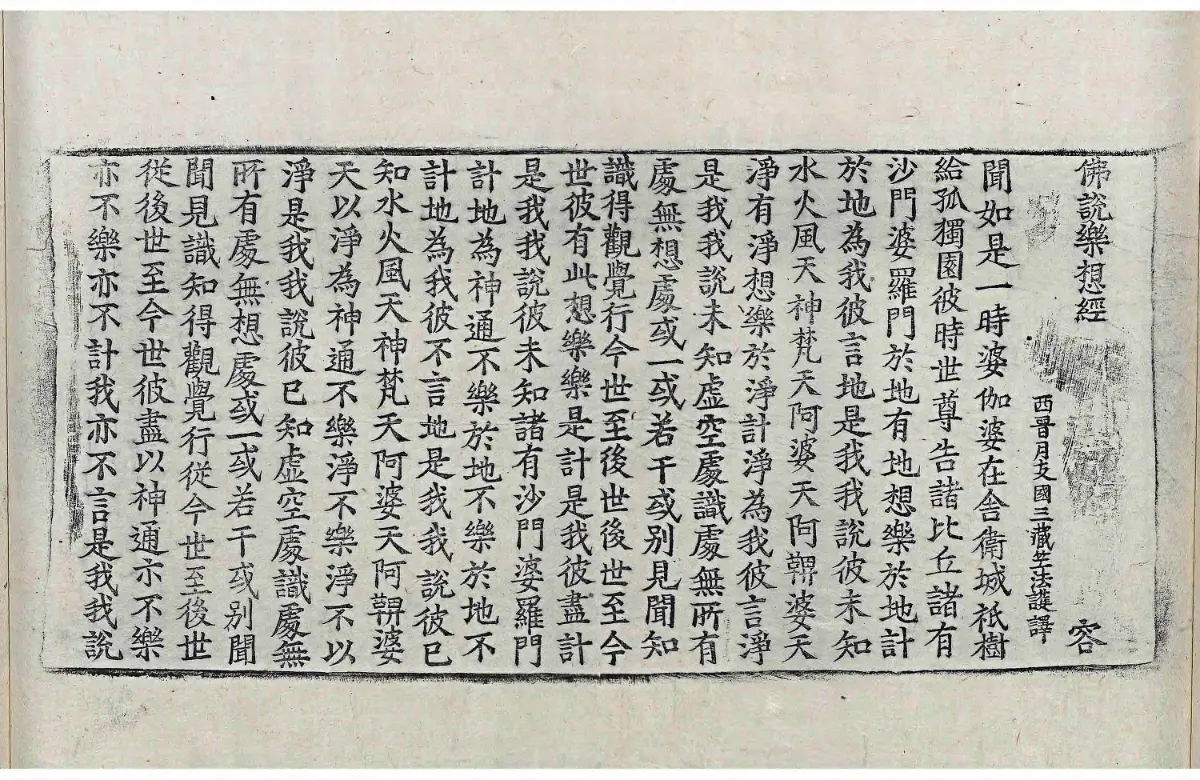 佛說樂想經 容
西晉月支國三藏竺法護譯
聞如是一時婆伽婆在舍衛城祇樹
給孤獨園彼時世尊告諸比丘諸有
沙門婆羅門於地有地想樂於地計
於地為我彼言地是我我說彼未知
水火風天神梵天阿婆天阿鞞婆天
淨有淨想樂於淨計淨為我彼言淨
是我我說未知虛空處識處無所有
處無想處或一或若干或別見聞知
識得觀覺行今世至後世後世至今
世彼有此想樂樂是計是我彼盡計
是我我說彼未知諸有沙門婆羅門
計地為神通不樂於地不樂於地不
計地為我彼不言地是我我說彼已
知水火風天神梵天阿婆天阿鞞婆
天以淨為神通不樂淨不樂淨不以
淨是我我說彼已知虛空處識處無
所有處無想處或一或若干或別聞
聞見識知得觀覺行從今世至後世
從後世至今世彼盡以神通亦不樂
亦不樂亦不計我亦不言是我我說